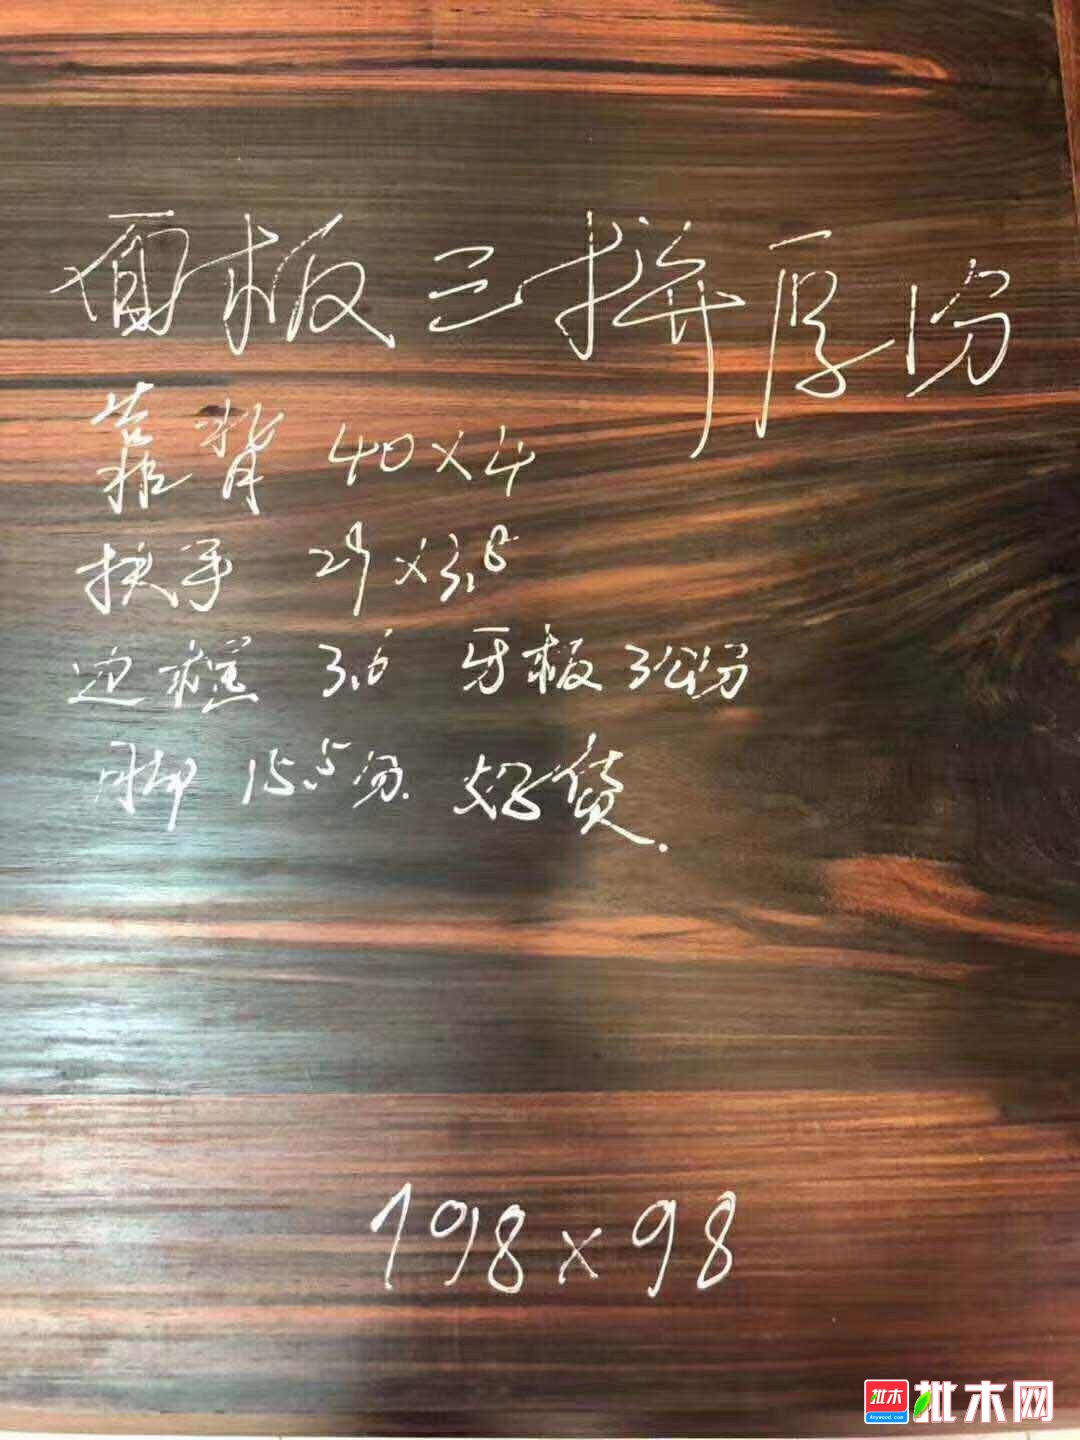 面板三拼厚1分
靠背 40×4
扶手 29×3.8
边框 3.6 牙板3公分
脚 15.5分 好货.
198×98
批木 批木网
Anywood.com